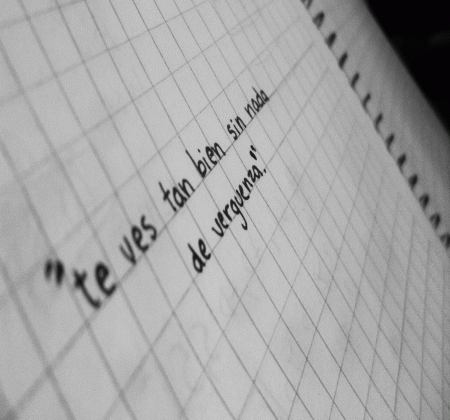 "te ves tan bien sin nada
de verguenza."